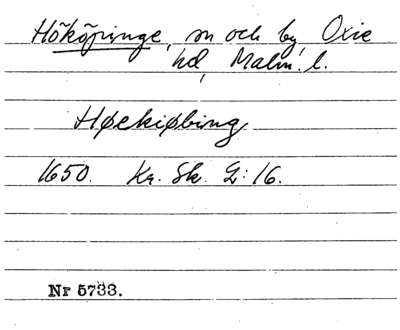 Hököpinge, sn och by, Oxie
hd, Malm. l.
Høekiøbing
1650. Kr. Sk. G: 16.
Nr 5733.